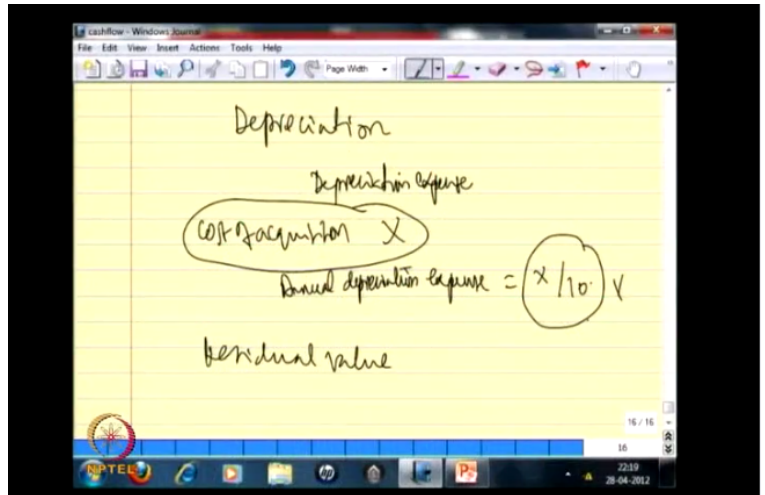 cashflow - Windows Journal
File Edit View Insert Actions Tools Help
Page Width
Depreciation
Depreciation expense
cost of acquisition X
Annual depreciation expense = X/10
Residual value
16 / 16
16
NPTEL
22:19
28-04-2012